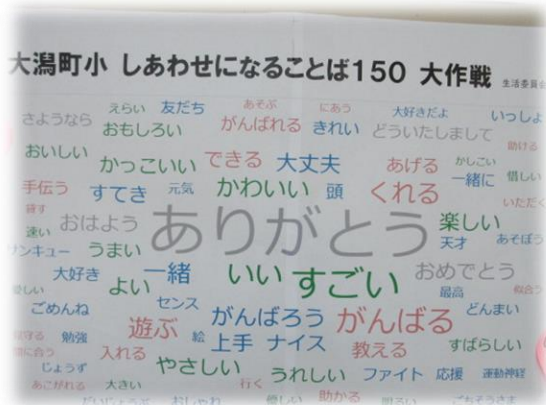 大潟町小 しあわせになることば150 大作戦 生活委員会
えらい 友だち あそぶ にあう 大好きだよ いっしょ
さようなら おもしろい がんばれる きれい どういたしまして 助ける
おいしい かっこいい できる 大丈夫 あげる かしこい 一緒に 惜しい
手伝う すてき 元気 かわいい 頭 くれる いただく
貸す
速い おはよう ありがとう 楽しい 天才 あそぼう
サンキュー うまい
大好き よい 一緒 いい すごい おめでとう 最高 似合う
ごめんね センス がんばろう がんばる どんまい
勉強 遊ぶ 絵 上手 ナイス 教える すばらしい
じょうず 入れる やさしい うれしい ファイト 応援 運動神経
あこがれる 大きい 行く 優しい 助かる 明るい ごちそうさま
だいじょうぶ おしゃれ